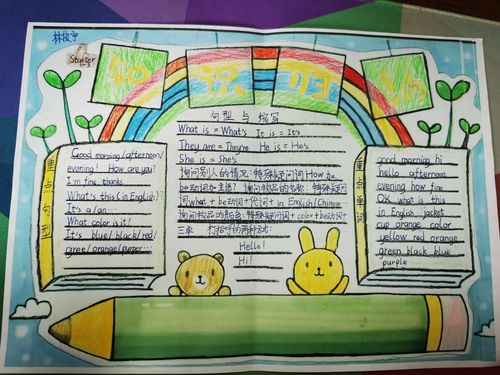 林俊宇
Starter
1-3
知识归纳
句型与缩写
What is = What's It is = It's
They are = They're He is = He's
She is = She's
询问别人的情况:特殊疑问词How+
be动词+主语? 询问物品的名称:特殊疑问
词what+be动词+代词+in English/Chinese
询问物品的颜色:特殊疑问词+color+be动词+
三单 打招呼的两种方式:
Hello!
Hi!
重点句型
Good morning/afternoon/
evening! How are you?
I'm fine, thanks.
What's this(in English)?
It's a/an...
What color is it?
It's blue/black/red/
gree/orange/purper...
重点单词
good morning hi
hello afternoon
evening how fine
OK what is this
in English jacket
cup orange color
yellow red orange
green black blue
purple